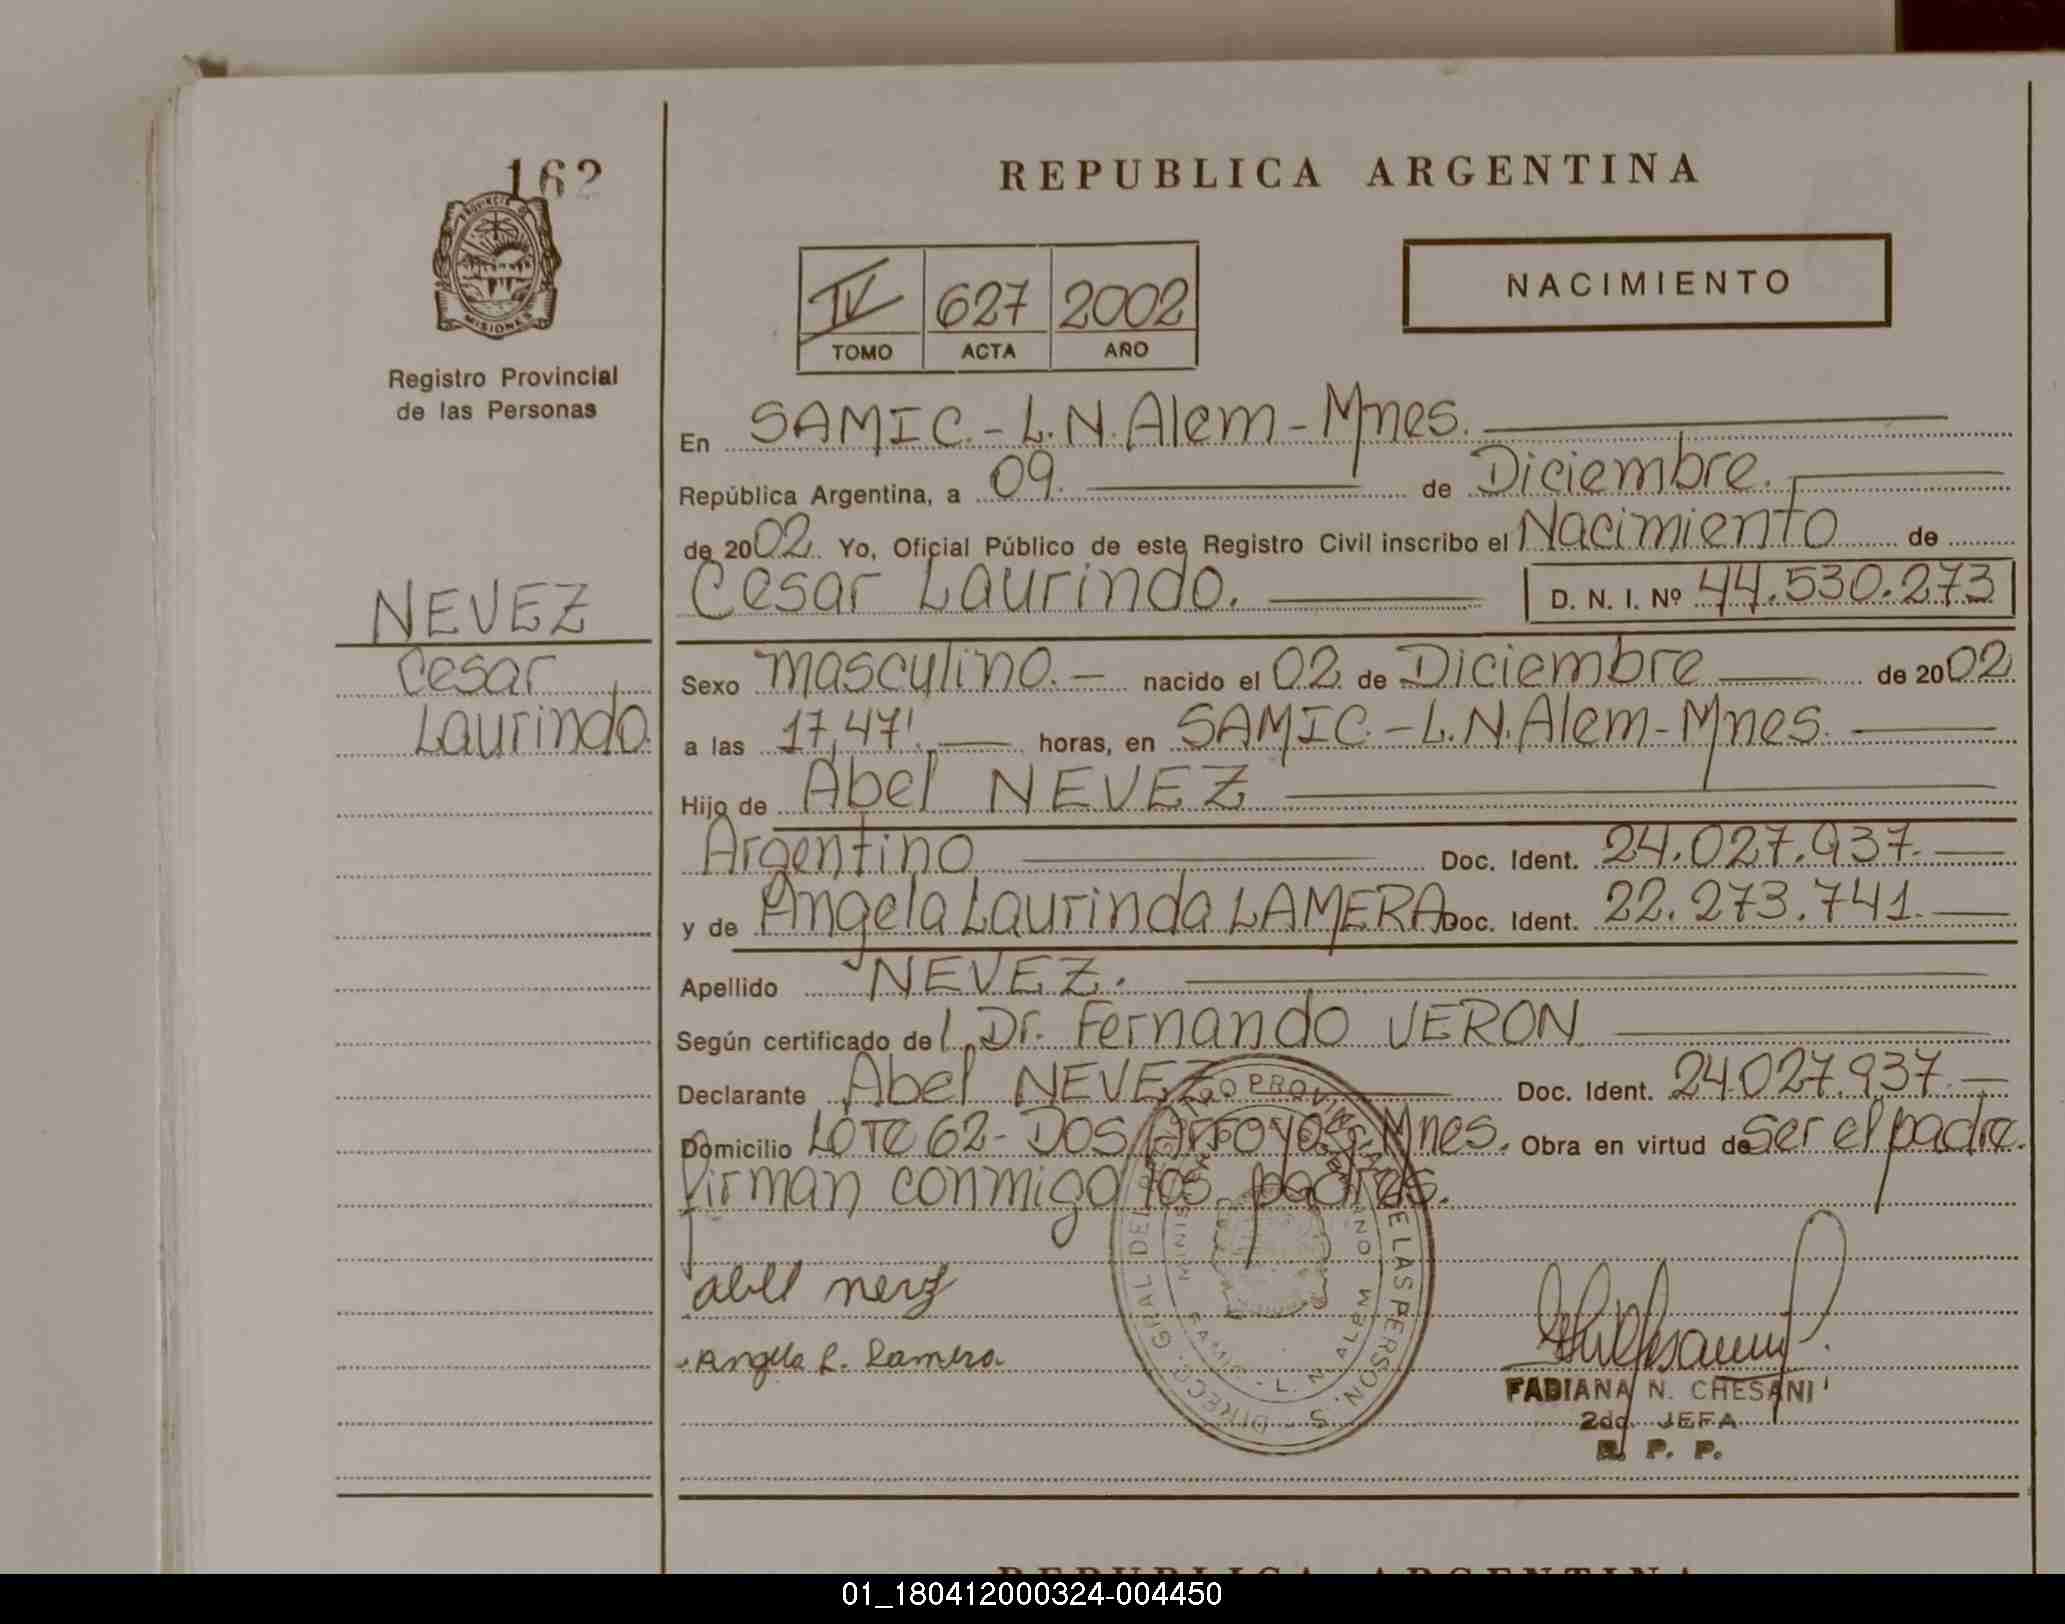 162
PROVINCIA DE
MISIONES
Registro Provincial
de las Personas
NEVEZ
Cesar
Laurindo.
REPUBLICA ARGENTINA
IV 627 2002
TOMO ACTA AÑO
NACIMIENTO
En SAMIC.-L.N.Alem-Mnes.
República Argentina, a 09. de Diciembre.
de 2002. Yo, Oficial Público de este Registro Civil inscribo el Nacimiento de
Cesar Laurindo. D. N. I. Nº 44.530.273
Sexo masculino.- nacido el 02 de Diciembre de 2002
a las 17,47'. horas, en SAMIC.-L.N.Alem-Mnes.
Hijo de Abel NEVEZ
Argentino Doc. Ident. 24.027.937.
y de Angela Laurinda LAMERA Doc. Ident. 22.273.741.
Apellido NEVEZ.
Según certificado del Dr. Fernando VERON
Declarante Abel NEVEZ Doc. Ident. 24.027.937.
Domicilio LOTE 62- DOS Arroyos-Mnes. Obra en virtud de ser el padre.
firman conmigo los padres.
abel nevez
Angela L. Lamera
FABIANA N. CHESANI
2da. JEFA
R. P. P.
SAMIC - L. N. ALEM
REPUBLICA ARGENTINA
01_180412000324-004450